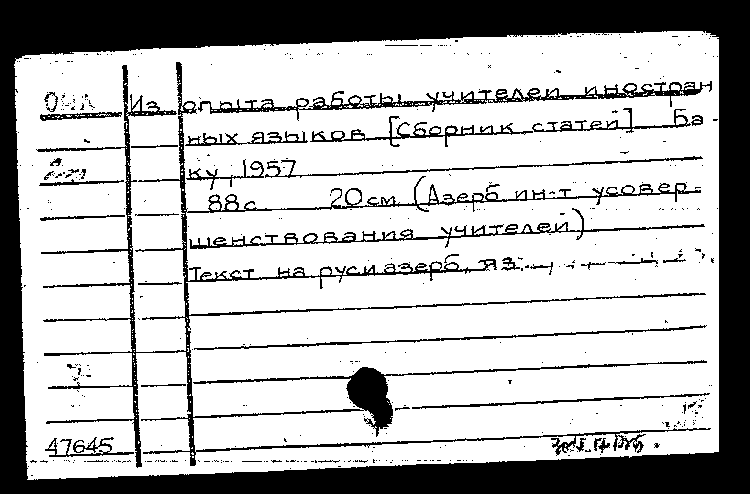 Из опыта работы учителей иностран
ных языков [Сборник статей] Ба-
ку, 1957
88с. 20см (Азерб ин-т усовер-
шенствования учителей)
Текст на рус и азерб. яз.
47645